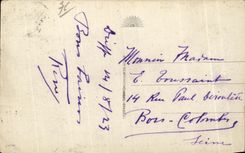 14/8/23
Bons baisers
Monsieur Madame
E. Toussaint
14 Rue Paul Déroulède
Bois-Colombes
Seine